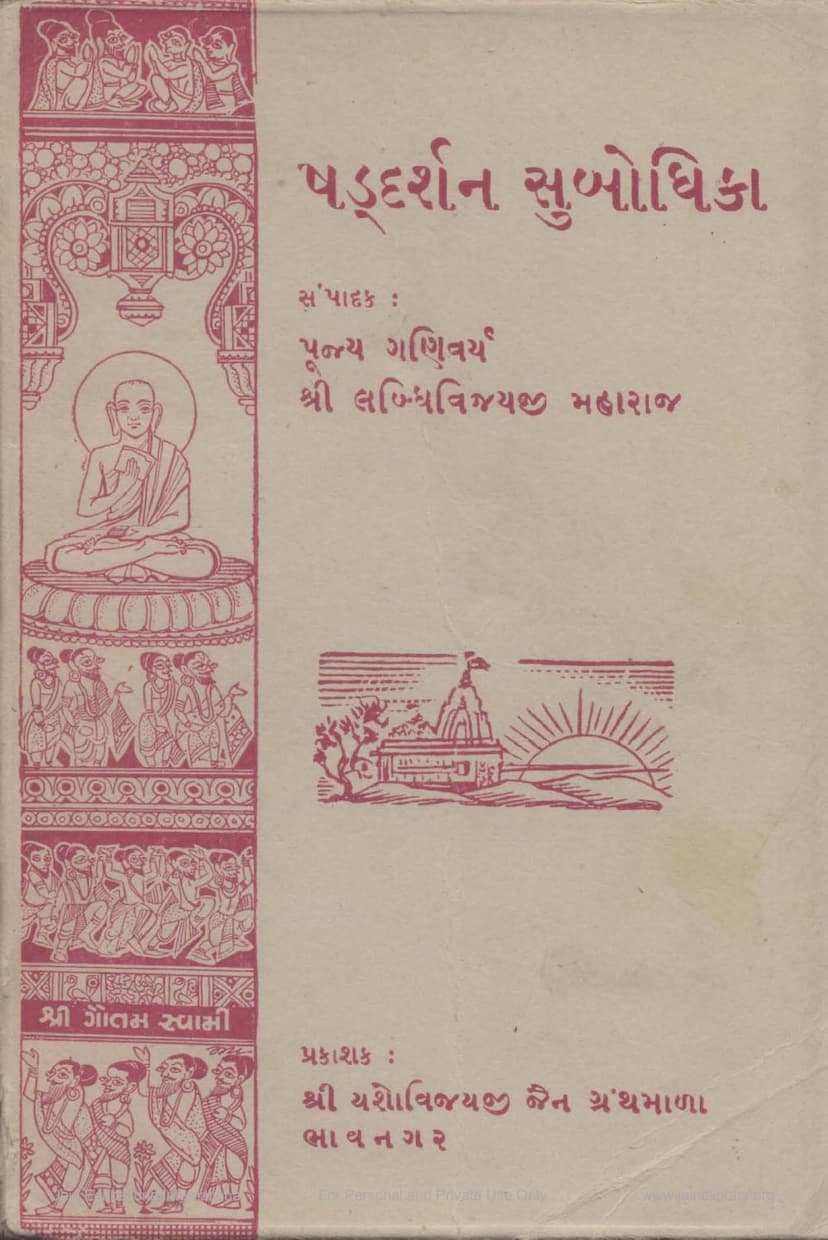 ષડ્દર્શન સુબોધિકા
સંપાદક :
પૂજ્ય ગણિવર્ય
શ્રી લબ્ધિવિજયજી મહારાજ
શ્રી ગૌતમ સ્વામી
પ્રકાશક :
શ્રી યશોવિજયજી જૈન ગ્રંથમાળા
ભાવનગર
Jain Education International
For Personal and Private Use Only
www.jainelibrary.org